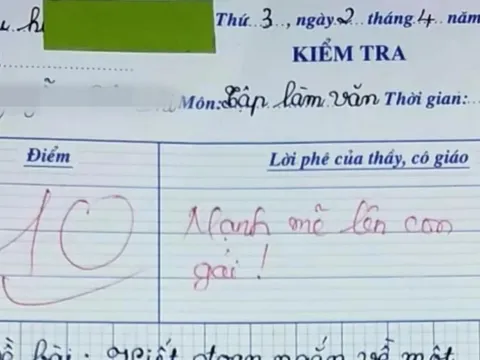 Thứ 3, ngày 2 tháng 4 năm
KIỂM TRA
Môn: Tập làm văn Thời gian:
Điểm
Lời phê của thầy, cô giáo
10
Mạnh mẽ lên con
gái!
bài: Viết đoạn ngắn về một